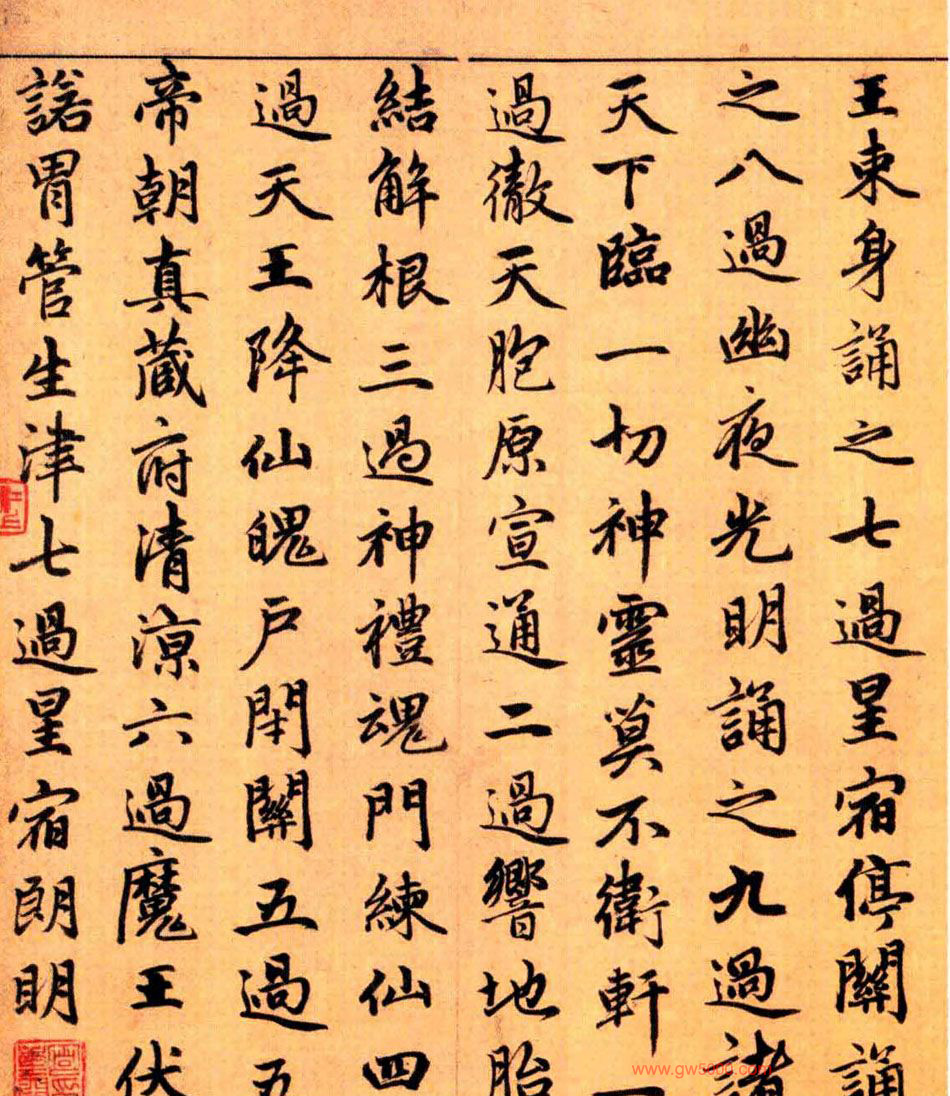 王束身誦之七過星宿停關誦
之八過幽夜光明誦之九過諸
天下臨一切神靈莫不衛軒一
過徹天胞原宣通二過響地胎
結解根三過神禮魂門練仙四
過天王降仙魄戶閇關五過五
帝朝真藏府清涼六過魔王伏
諾胃管生津七過星宿朗明